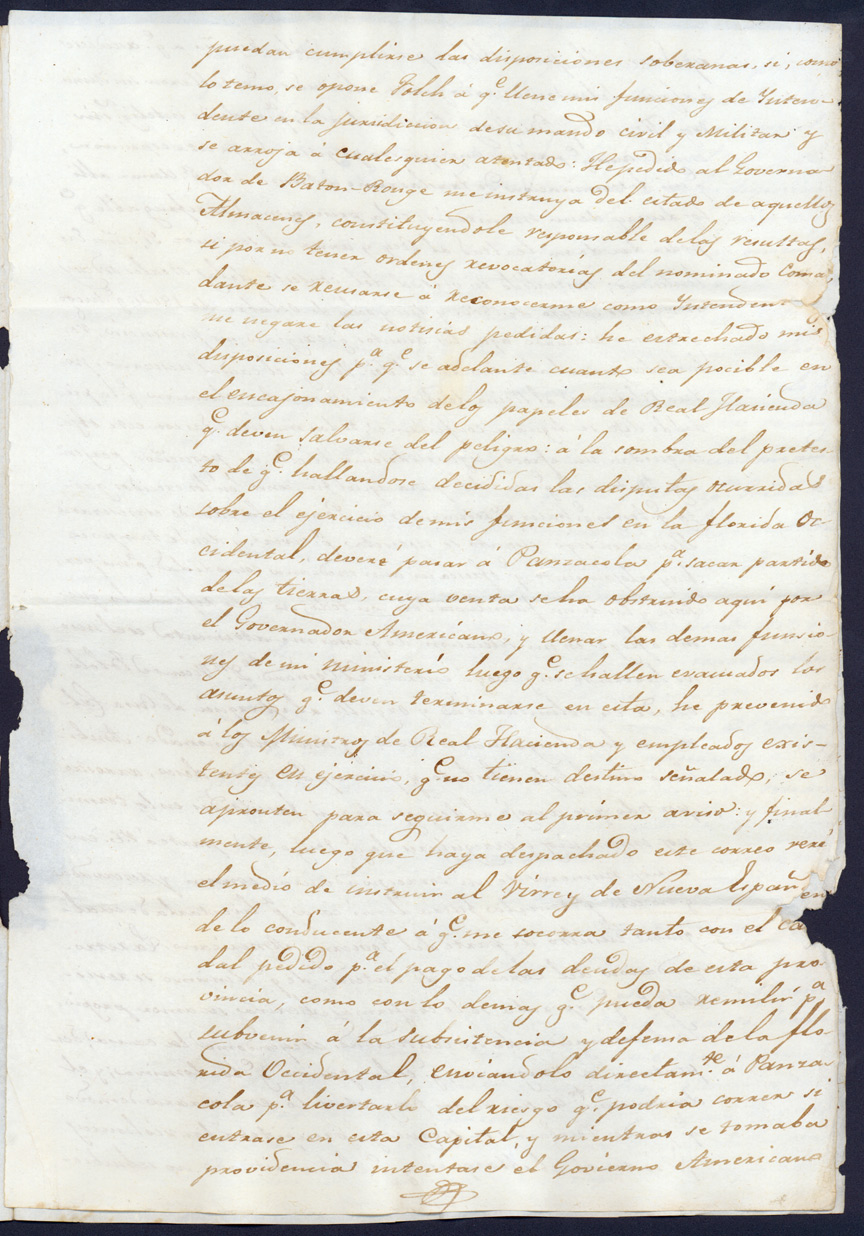 puedan cumplirse las disposiciones soberanas, si, como
lo temo, se opone Folch á q.^e llene mis funciones de Inten-
dente en la jurisdicion de su mando civil y Militar y
se arroja á cualesquier atentado: He pedido al Governa
dor de Baton-Rouge me instruya del estado de aquellos
Almacenes, constituyendole responsable de las resultas,
si por no tener ordenes revocatorias del nominado Coma
dante se reusarse á reconocerme como Intenden
me negare las noticias pedidas: he estrechado mis
disposiciones p.^a q.^e se adelante cuanto sea pocible en
el encajonamiento de los papeles de Real Hacienda
q.^e deven salvarse del peligro: á la sombra del pretes-
to de q.^e hallandose decididas las disputas ocurridas
sobre el ejercicio de mis funciones en la florida Oc-
cidental, deveré pasar á Panzacola p.^a sacar partido
de las tierras, cuya venta se ha obstruido aquí por
el Governador Americano, y llenar las demas funsio-
nes de mi ministerio luego q.^e se hallen evacuados los
asuntos q.^e deven terminarse en esta, he prevenido
á los Ministros de Real Hacienda y empleados exis-
tentes en ejercicio, q.^e no tienen destino señalado, se
apronten para seguirme al primer aviso: y final-
mente, luego que haya despachado este correo veré
el medio de instruir al Virrey de Nueva España en
de lo conducente á q.^e me socorra tanto con el ca
dal pedido p.^a el pago de las deudas de esta pro-
vincia, como con lo demas q.^e pueda remitir p.^a
subvenir á la subsistencia y defensa de la flo-
rida Occidental, enviandolo directam.^te á Panza-
cola p.^a livertarlo del riesgo q.^e podria correr si
entrase en esta Capital, y mientras se tomaba
providencia intentase el Govierno Americano